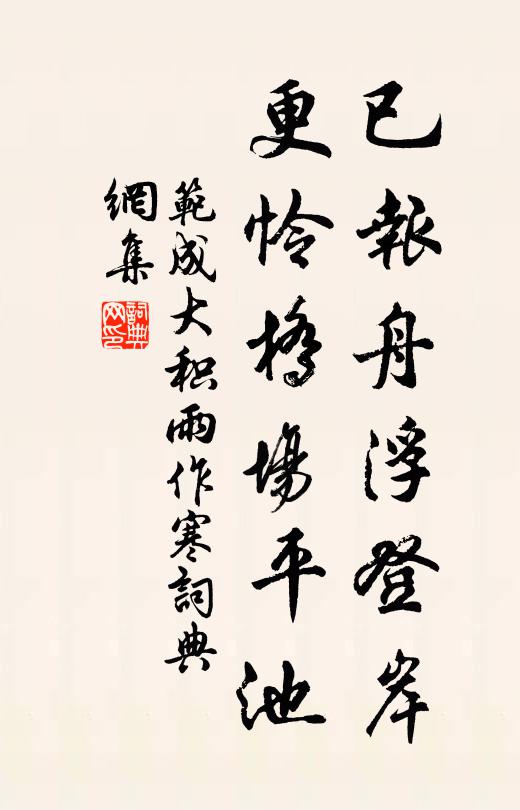 已報舟浮登岸
更怜橋塲平池
範成大积雨作寒詞典
網集
詞典
网印